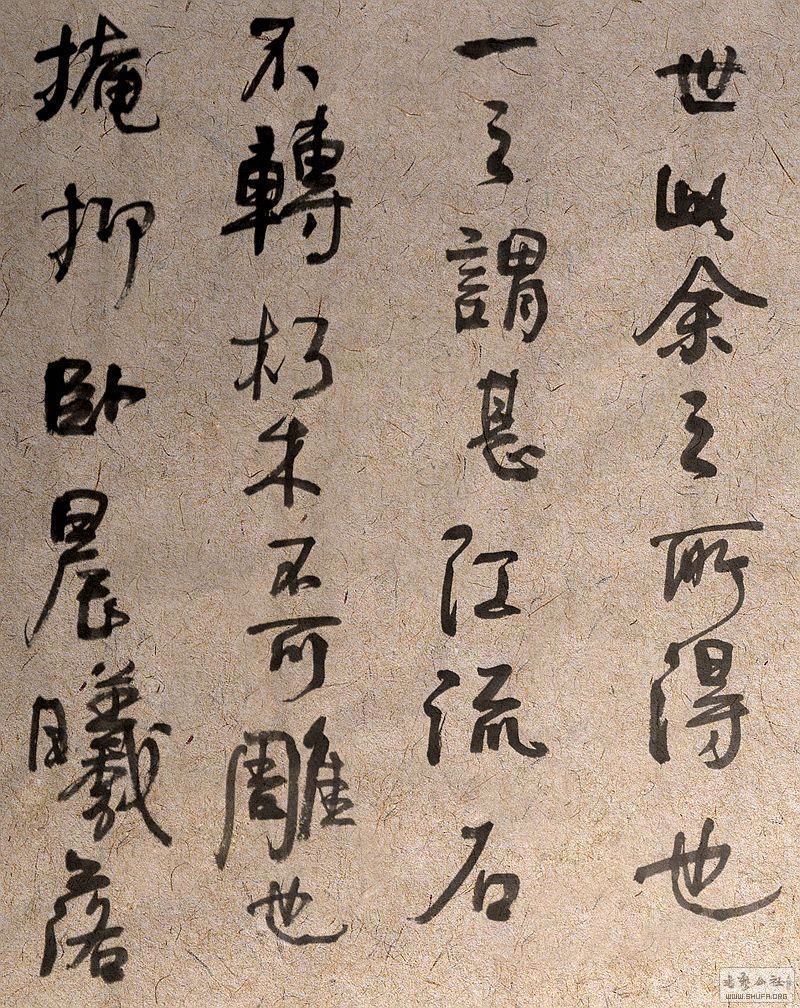 世此余之所得也
一之謂甚江流石
不轉朽木不可雕也
掩抑臥晨曦落
WWW.SHUFA.ORG